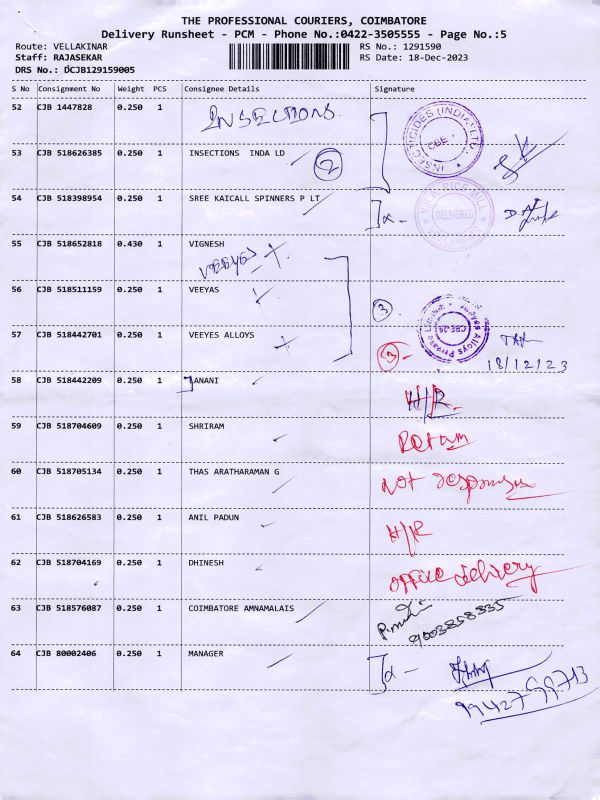 THE PROFESSIONAL COURIERS, COIMBATORE
Delivery Runsheet - PCM - Phone No.:0422-3505555 - Page No.:5
Route: VELLAKINAR
RS No.: 1291590
Staff: RAJASEKAR
RS Date: 18-Dec-2023
DRS No.: DCJB129159005
S No Consignment No Weight PCS Consignee Details Signature
52 CJB 1447828 0.250 1 INSECTIONS
INSECTICIDES (INDIA) LTD. CBE
53 CJB 518626385 0.250 1 INSECTIONS INDA LD 2
54 CJB 518398954 0.250 1 SREE KAICALL SPINNERS P LT
DELIVERED
55 CJB 518652818 0.430 1 VIGNESH
56 CJB 518511159 0.250 1 VEEYAS 3
57 CJB 518442701 0.250 1 VEEYES ALLOYS 3
Veeyes Alloys Private Limited
18/12/23
58 CJB 518442209 0.250 1 JANANI H/R
59 CJB 518704609 0.250 1 SHRIRAM
60 CJB 518705134 0.250 1 THAS ARATHARAMAN G Not
61 CJB 518626583 0.250 1 ANIL PADUN H/R
62 CJB 518704169 0.250 1 DHINESH office delivery
63 CJB 518576087 0.250 1 COIMBATORE AMNAMALAIS
9003858835
64 CJB 80002406 0.250 1 MANAGER